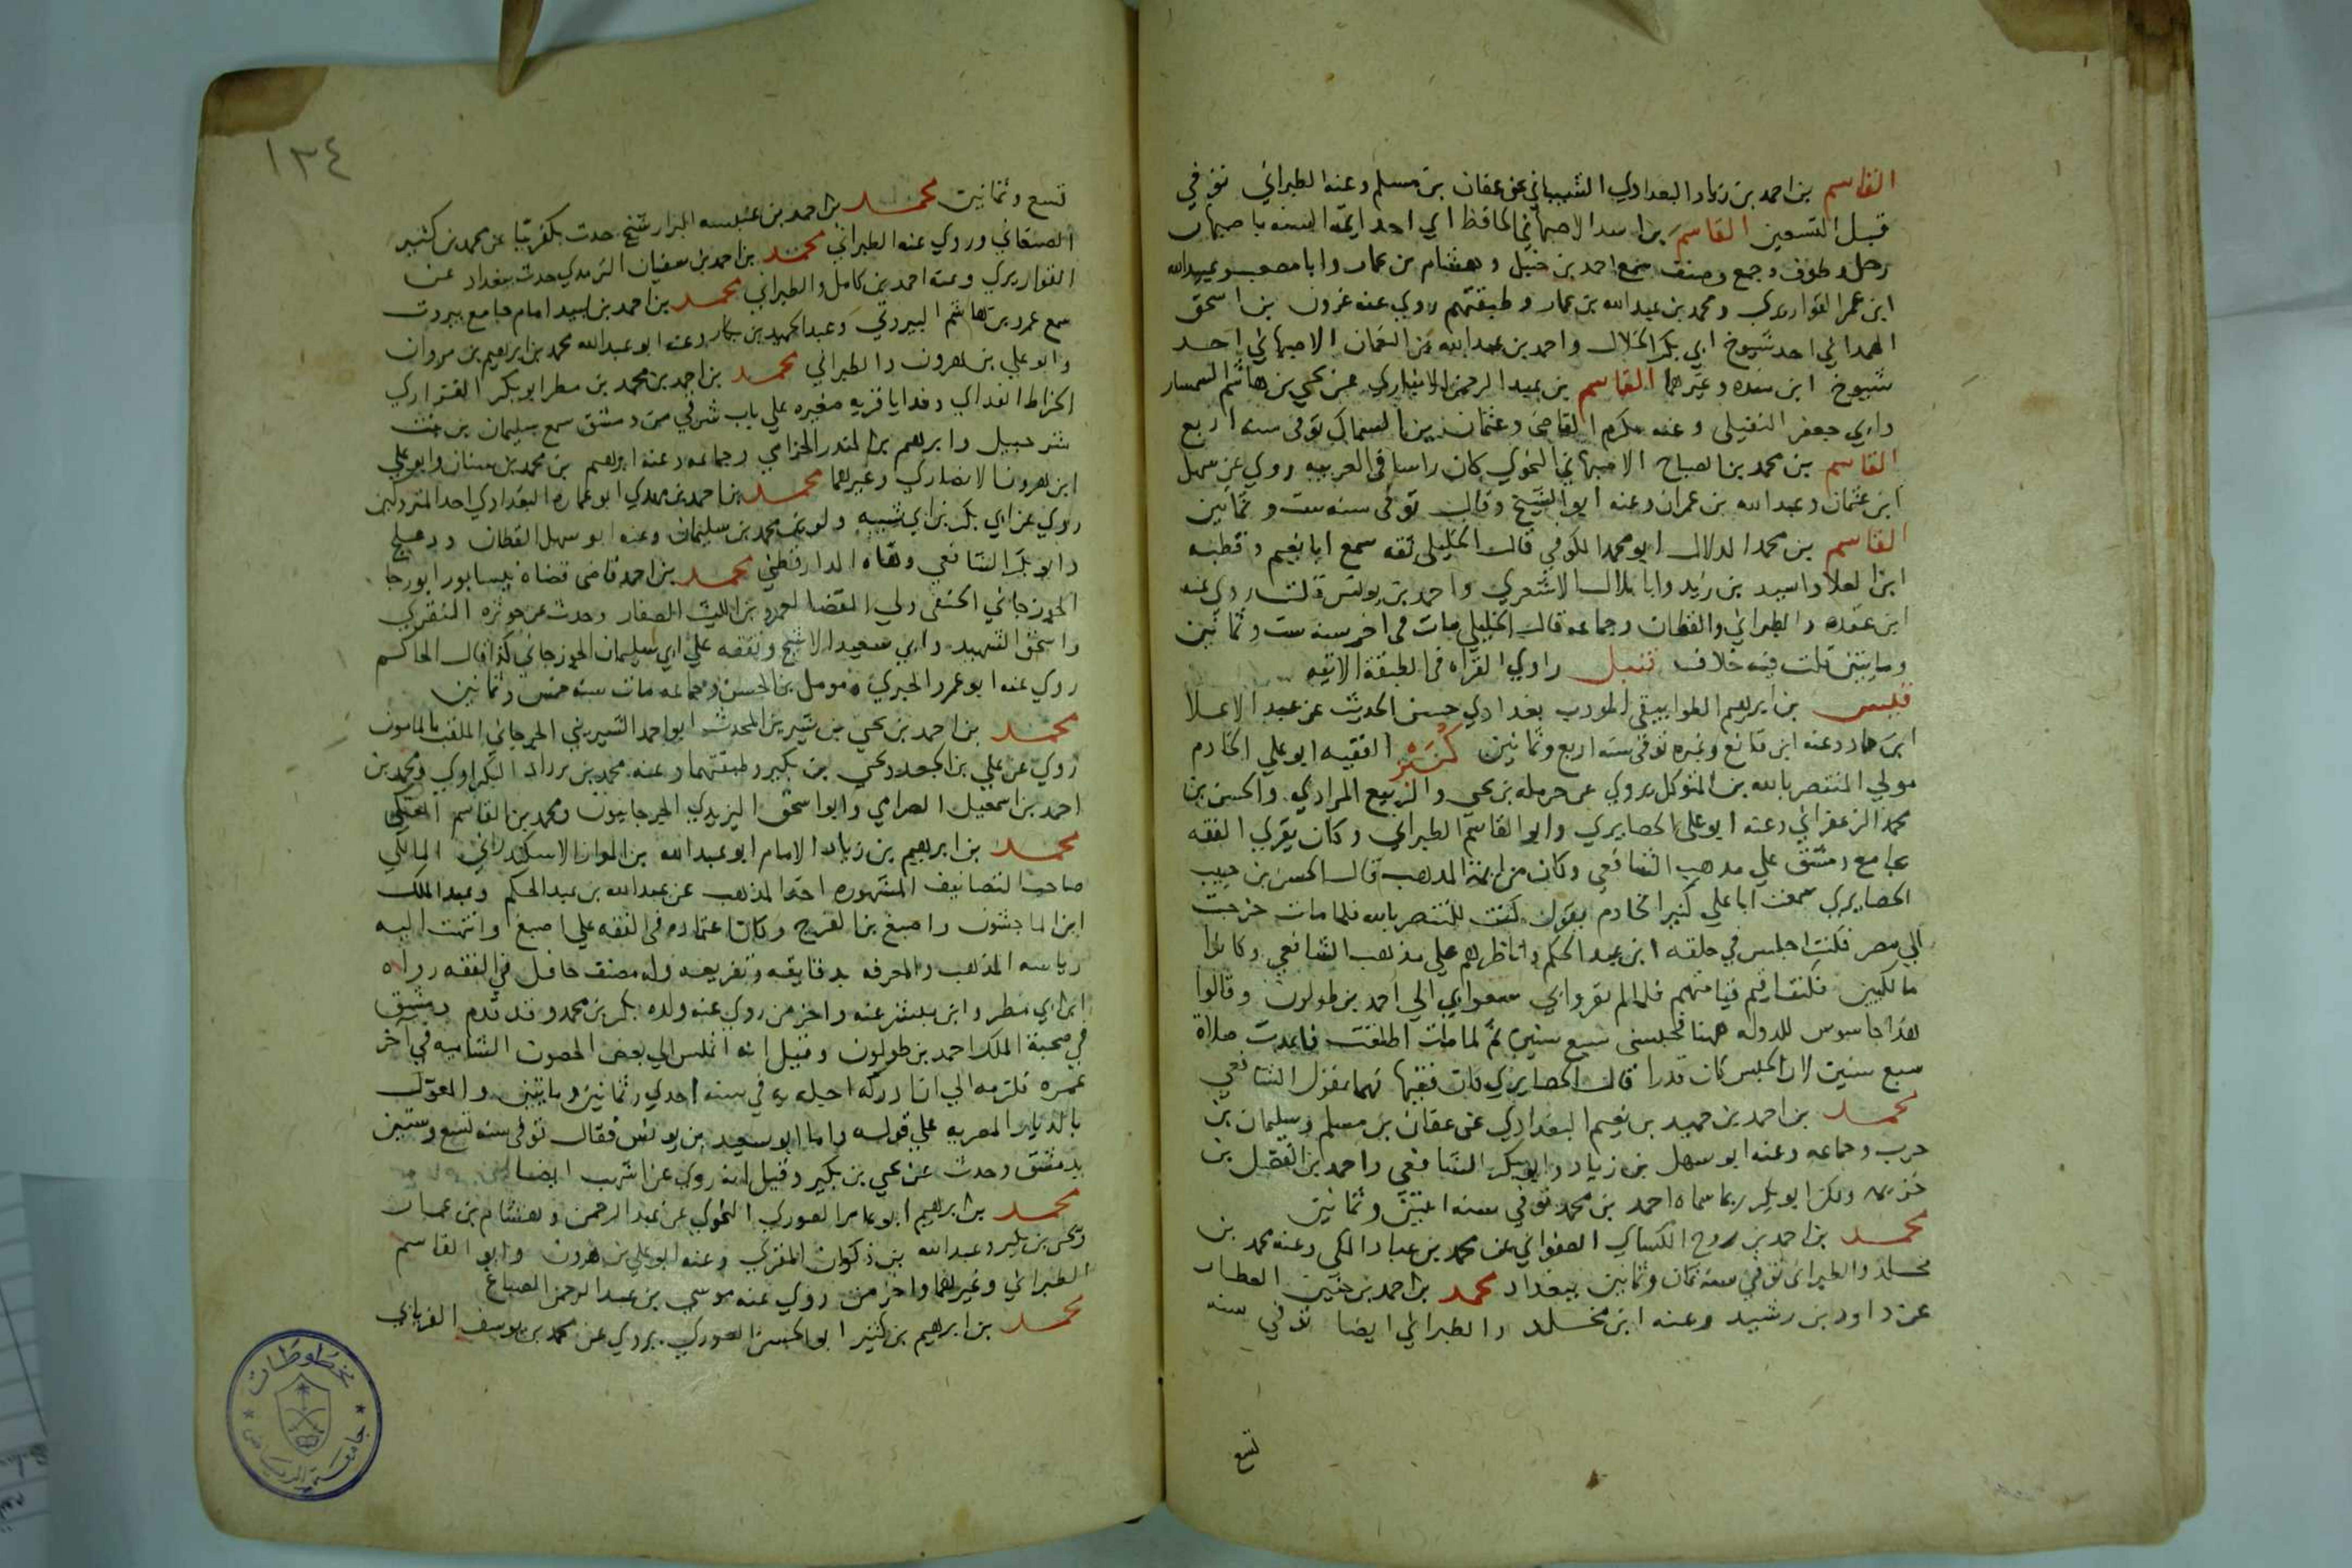 القاسم بن احمد بن زياد البغدادي الشيباني عن عفان بن مسلم وعنه الطبراني توفي
قبل التسعين القاسم بن اسد الاصبهاني الحافظ اي احد ايمة السنه باصبهان
رحل وطوف وجمع وصنف سمع احمد بن حنبل وهشام بن عمار وابا مصعب وعبيدالله
ابن عمر القواريري ومحمد بن عبدالله بن عمار وطبقتهم روي عنه عزون بن اسحق
الهمداني احد شيوخ ابي بكر الخلال واحمد بن عبدالله بن النعمان الاصبهاني احد
شيوخ ابن منده وغيرهما القاسم بن عبد الرحمن الانباري عن يحيي بن هاشم السمسار
وابي جعفر النفيلي وعنه مكرم القاضي وعثمان بن السماك توفي سنه اربع
القاسم بن محمد بن الصباح الاصبهاني النحوي كان راسا في العربيه روي عن سهل
ابن عثمان وعبدالله بن عمران وعنه ابو الشيخ وقال توفي سنه ست وثمانين
القاسم بن محمد الدلال ابو محمد الكوفي قال الخليلي ثقه سمع ابا نعيم وقطبه
ابن العلا واسيد بن زيد وابا بلال الاشعري واحمد بن يونس قلت روي عنه
ابن عقده والطبراني والقطان وجماعه قال الخليلي مات في اخر سنه ست وثمانين
ومايتين قلت فيه خلاف قنبل راوي القراه في الطبقة الاتيه
قيس بن ابرهيم الطوابيقي المودب بغدادي حسن الحديث عن عبد الاعلا
ابن حماد وعنه ابن قانع وغيره توفي سنه اربع وثمانين كنيز الفقيه ابو علي الخادم
مولي المنتصر بالله بن المتوكل يروي عن حرمله بن يحيي والربيع المرادي والحسن بن
محمد الزعفراني وعنه ابو علي الحصايري وابو القاسم الطبراني وكان يقري الفقه
بجامع دمشق علي مذهب الشافعي وكان من ايمة المذهب قال الحسن بن حبيب
الحصايري سمعت ابا علي كنيز الخادم يقول كنت للمنتصر بالله فلما مات خرجت
الي مصر فكنت اجلس في حلقه ابن عبد الحكم واناظرهم علي مذهب الشافعي وكانوا
مالكيين فلما لم يقووا بي سعوا بي الي احمد بن طولون وقالوا
هذا جاسوس للدوله ههنا فحبسني سبع سنين ثم لما مات اطلقت فاعدت صلاة
سبع سنين لان الحبس كان قذرا قال الحصايري كان فقيها فهما بقول الشافعي
محمد بن احمد بن حميد بن نعيم البغدادي عن عفان بن مسلم وسليمان بن
حرب وجماعه وعنه ابو سهل بن زياد وابو بكر الشافعي واحمد بن الفضل بن
خزيمه ولكن ابو بكر ربما سماه احمد بن محمد توفي سنه اثنتين وثمانين
محمد بن احمد بن روح الكساي الصفواني عن محمد بن عباد المكي وعنه محمد بن
مخلد والطبراني توفي سنه ثمان وثمانين ببغداد محمد بن احمد بن حنين العطار
عن داود بن رشيد وعنه ابن مخلد والطبراني ايضا توفي سنه
تسع
١٣٤
تسع وثمانين محمد بن احمد بن عنبسه البزار شيخ حدث بكفربيا عن محمد بن كثير
الصنعاني وروي عنه الطبراني محمد بن احمد بن سفيان الترمذي حدث ببغداد عن
القواريري وعنه احمد بن كامل والطبراني محمد بن احمد بن لبيد امام جامع بيروت
سمع عمرو بن هاشم البيروتي وعبد الحميد بن بكار وعنه ابو عبدالله محمد بن ابرهيم بن مروان
وابو علي بن هرون والطبراني محمد بن احمد بن محمد بن مطر ابو بكر الفزاري
الخراط الفدايي وفدايا قريه صغيره علي باب شرقي من دمشق سمع سليمان بن بنت
شرحبيل وابرهيم بن المنذر الحزامي وجماعه وعنه ابرهيم بن محمد بن سنان وابو علي
ابن هرون الانصاري وغيرهما محمد بن احمد بن مهدي ابو عماره البغدادي احد المتروكين
روي عن ابي بكر بن ابي شيبه ولوين محمد بن سليمان وعنه ابو سهل القطان ودعلج
وابو بكر الشافعي وهاه الدارقطني محمد بن احمد قاضي قضاة نيسابور ابو رجا
الجوزجاني الحنفي ولي القضا لعمرو بن الليث الصفار وحدث عن حوثره المنقري
واسحق الشهيد وابي سعيد الاشج وتفقه علي ابي سليمان الجوزجاني كذا قال الحاكم
روي عنه ابو عمرو الحيري ومومل بن الحسن وجماعه مات سنه خمس وثمانين
محمد بن احمد بن يحيي بن شيرين المحدث ابو احمد الشيريني الجرجاني الملقب بالمامون
روي عن علي بن الجعد ويحيي بن بكير وطبقتهما وعنه محمد بن يزداد البكراوي ومحمد بن
احمد بن اسمعيل الصرامي وابو اسحق اليزيدي الجرجانيون ومحمد بن القاسم العتكي
محمد بن ابرهيم بن زياد الامام ابو عبدالله بن المواز الاسكندراني المالكي
صاحب التصانيف المشهوره اخذ المذهب عن عبدالله بن عبد الحكم وعبد الملك
ابن الماجشون واصبغ بن الفرج وكان اعتماده في الفقه علي اصبغ وانتهت اليه
رياسه المذهب والمعرفه بدقايقه وتفريعه وله مصنف حافل في الفقه رواه
ابن ابي مطر وابن مبشر عنه واخر من روي عنه ولده بكر بن محمد وقد قدم دمشق
في صحبة الملك احمد بن طولون وقيل انه انملس الي بعض الحصون الشاميه في اخر
عمره فلزمه الي ان ادركه اجله في سنه احدي وثمانين ومايتين والمعول
بالديار المصريه علي قوله واما ابو سعيد بن يونس فقال توفي سنه تسع وستين
بدمشق وحدث عن يحيي بن بكير وقيل انه روي عن اشهب ايضا
محمد بن ابرهيم ابو عامر الصوري النحوي عن عبد الرحمن وهشام بن عمار
ويحيي بن بكير وعبدالله بن ذكوان المقري وعنه ابو علي بن هرون وابو القاسم
الطبراني وغيرهما واخر من روي عنه موسي بن عبد الرحمن الصباغ
محمد بن ابرهيم بن كثير ابو الحسن الصوري يروي عن محمد بن يوسف الفريابي
مخطوطات
جامعة الرياض